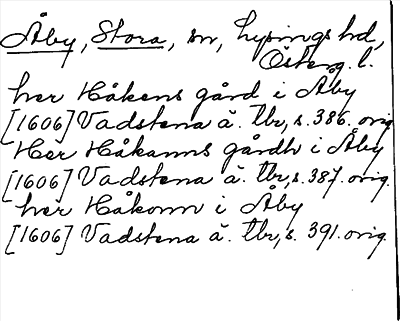 Åby, Stora, sn, Lysings hd,
Österg. l.
her Håkens gård i Åby
[1606] Vadstena ä. tbr, s. 386. orig
Her Håkanns gårdh i Åby
[1606] Vadstena ä. tbr, s. 387. orig.
her Håkonn i Åby
[1606] Vadstena ä. tbr, s. 391. orig.